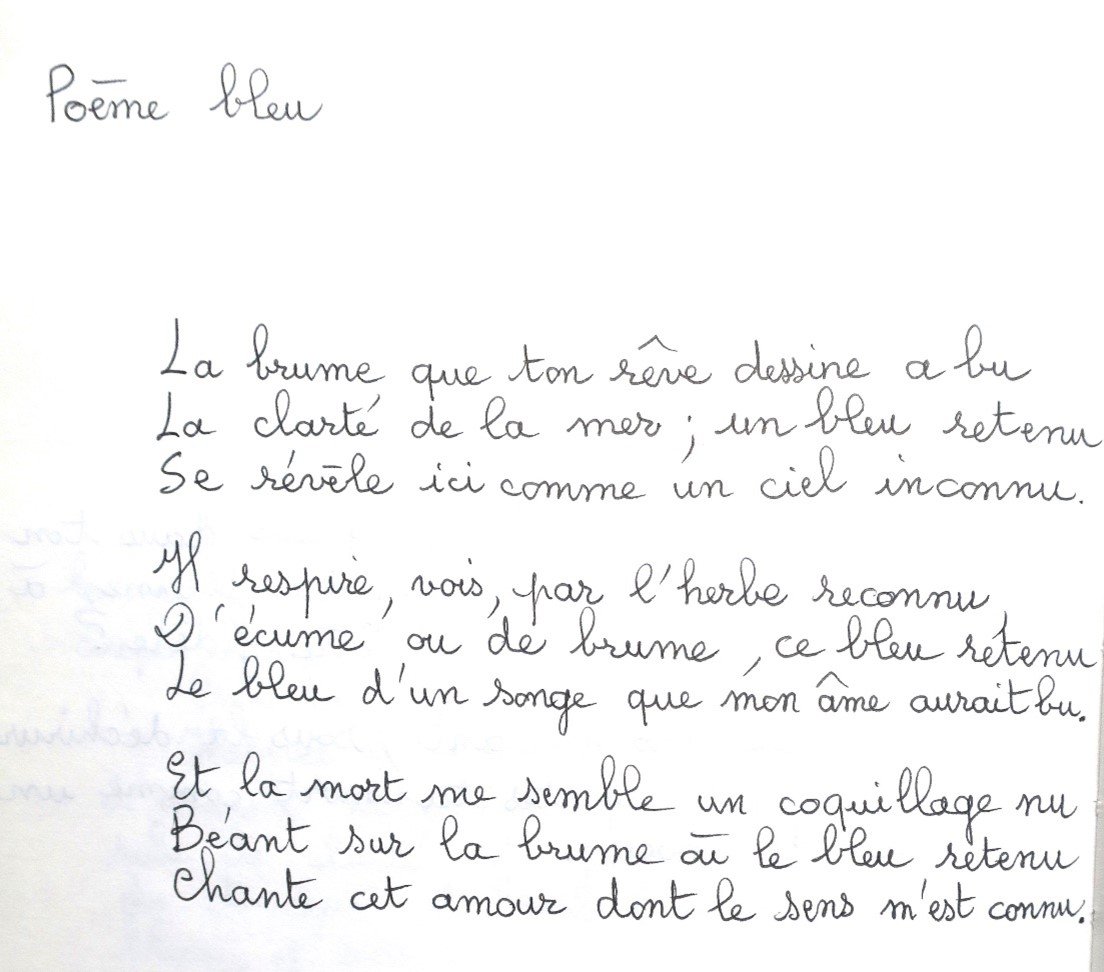 Poème bleu
La brume que ton rêve dessine a bu
La clarté de la mer ; un bleu retenu
Se révèle ici comme un ciel inconnu.
Il respire, vois, par l'herbe reconnu,
D'écume ou de brume, ce bleu retenu
Le bleu d'un songe que mon âme aurait bu.
Et la mort me semble un coquillage nu
Béant sur la brume où le bleu retenu
Chante cet amour dont le sens m'est connu.